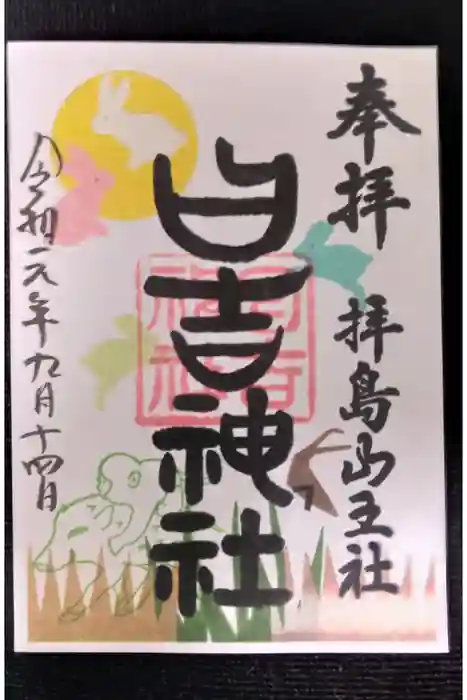 奉拝 拝島山王社
日吉神社
令和元年九月十四日